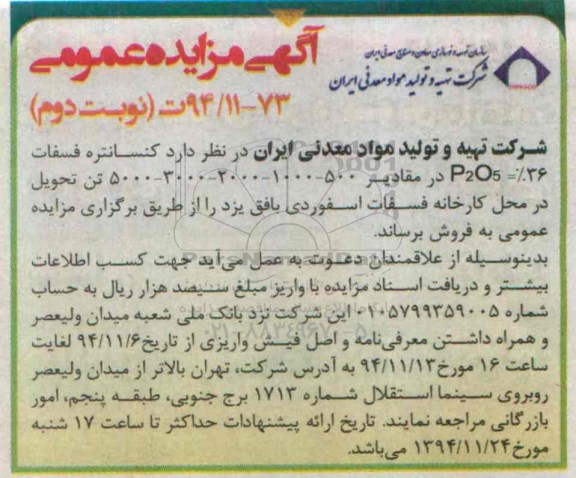 آگهی مزایده عمومی
سازمان توسعه و نوسازی معادن و صنایع معدنی ایران
شرکت تهیه و تولید مواد معدنی ایران
۷۳-۹۴/۱۱ت (نوبت دوم)
شرکت تهیه و تولید مواد معدنی ایران در نظر دارد کنسانتره فسفات
P2O5 =٪۳۶ در مقادیر ۵۰۰-۱۰۰۰-۲۰۰۰-۳۰۰۰-۵۰۰۰ تن تحویل
در محل کارخانه فسفات اسفوردی بافق یزد را از طریق برگزاری مزایده
عمومی به فروش برساند.
بدینوسیله از علاقمندان دعوت به عمل می‌آید جهت کسب اطلاعات
بیشتر و دریافت اسناد مزایده با واریز مبلغ سیصد هزار ریال به حساب
شماره ۰۱۰۵۷۹۹۳۵۹۰۰۵ این شرکت نزد بانک ملی شعبه میدان ولیعصر
و همراه داشتن معرفی‌نامه و اصل فیش واریزی از تاریخ ۹۴/۱۱/۶ لغایت
ساعت ۱۶ مورخ ۹۴/۱۱/۱۳ به آدرس شرکت، تهران بالاتر از میدان ولیعصر
روبروی سینما استقلال شماره ۱۷۱۳ برج جنوبی، طبقه پنجم، امور
بازرگانی مراجعه نمایند. تاریخ ارائه پیشنهادات حداکثر تا ساعت ۱۷ شنبه
مورخ ۱۳۹۴/۱۱/۲۴ می‌باشد.